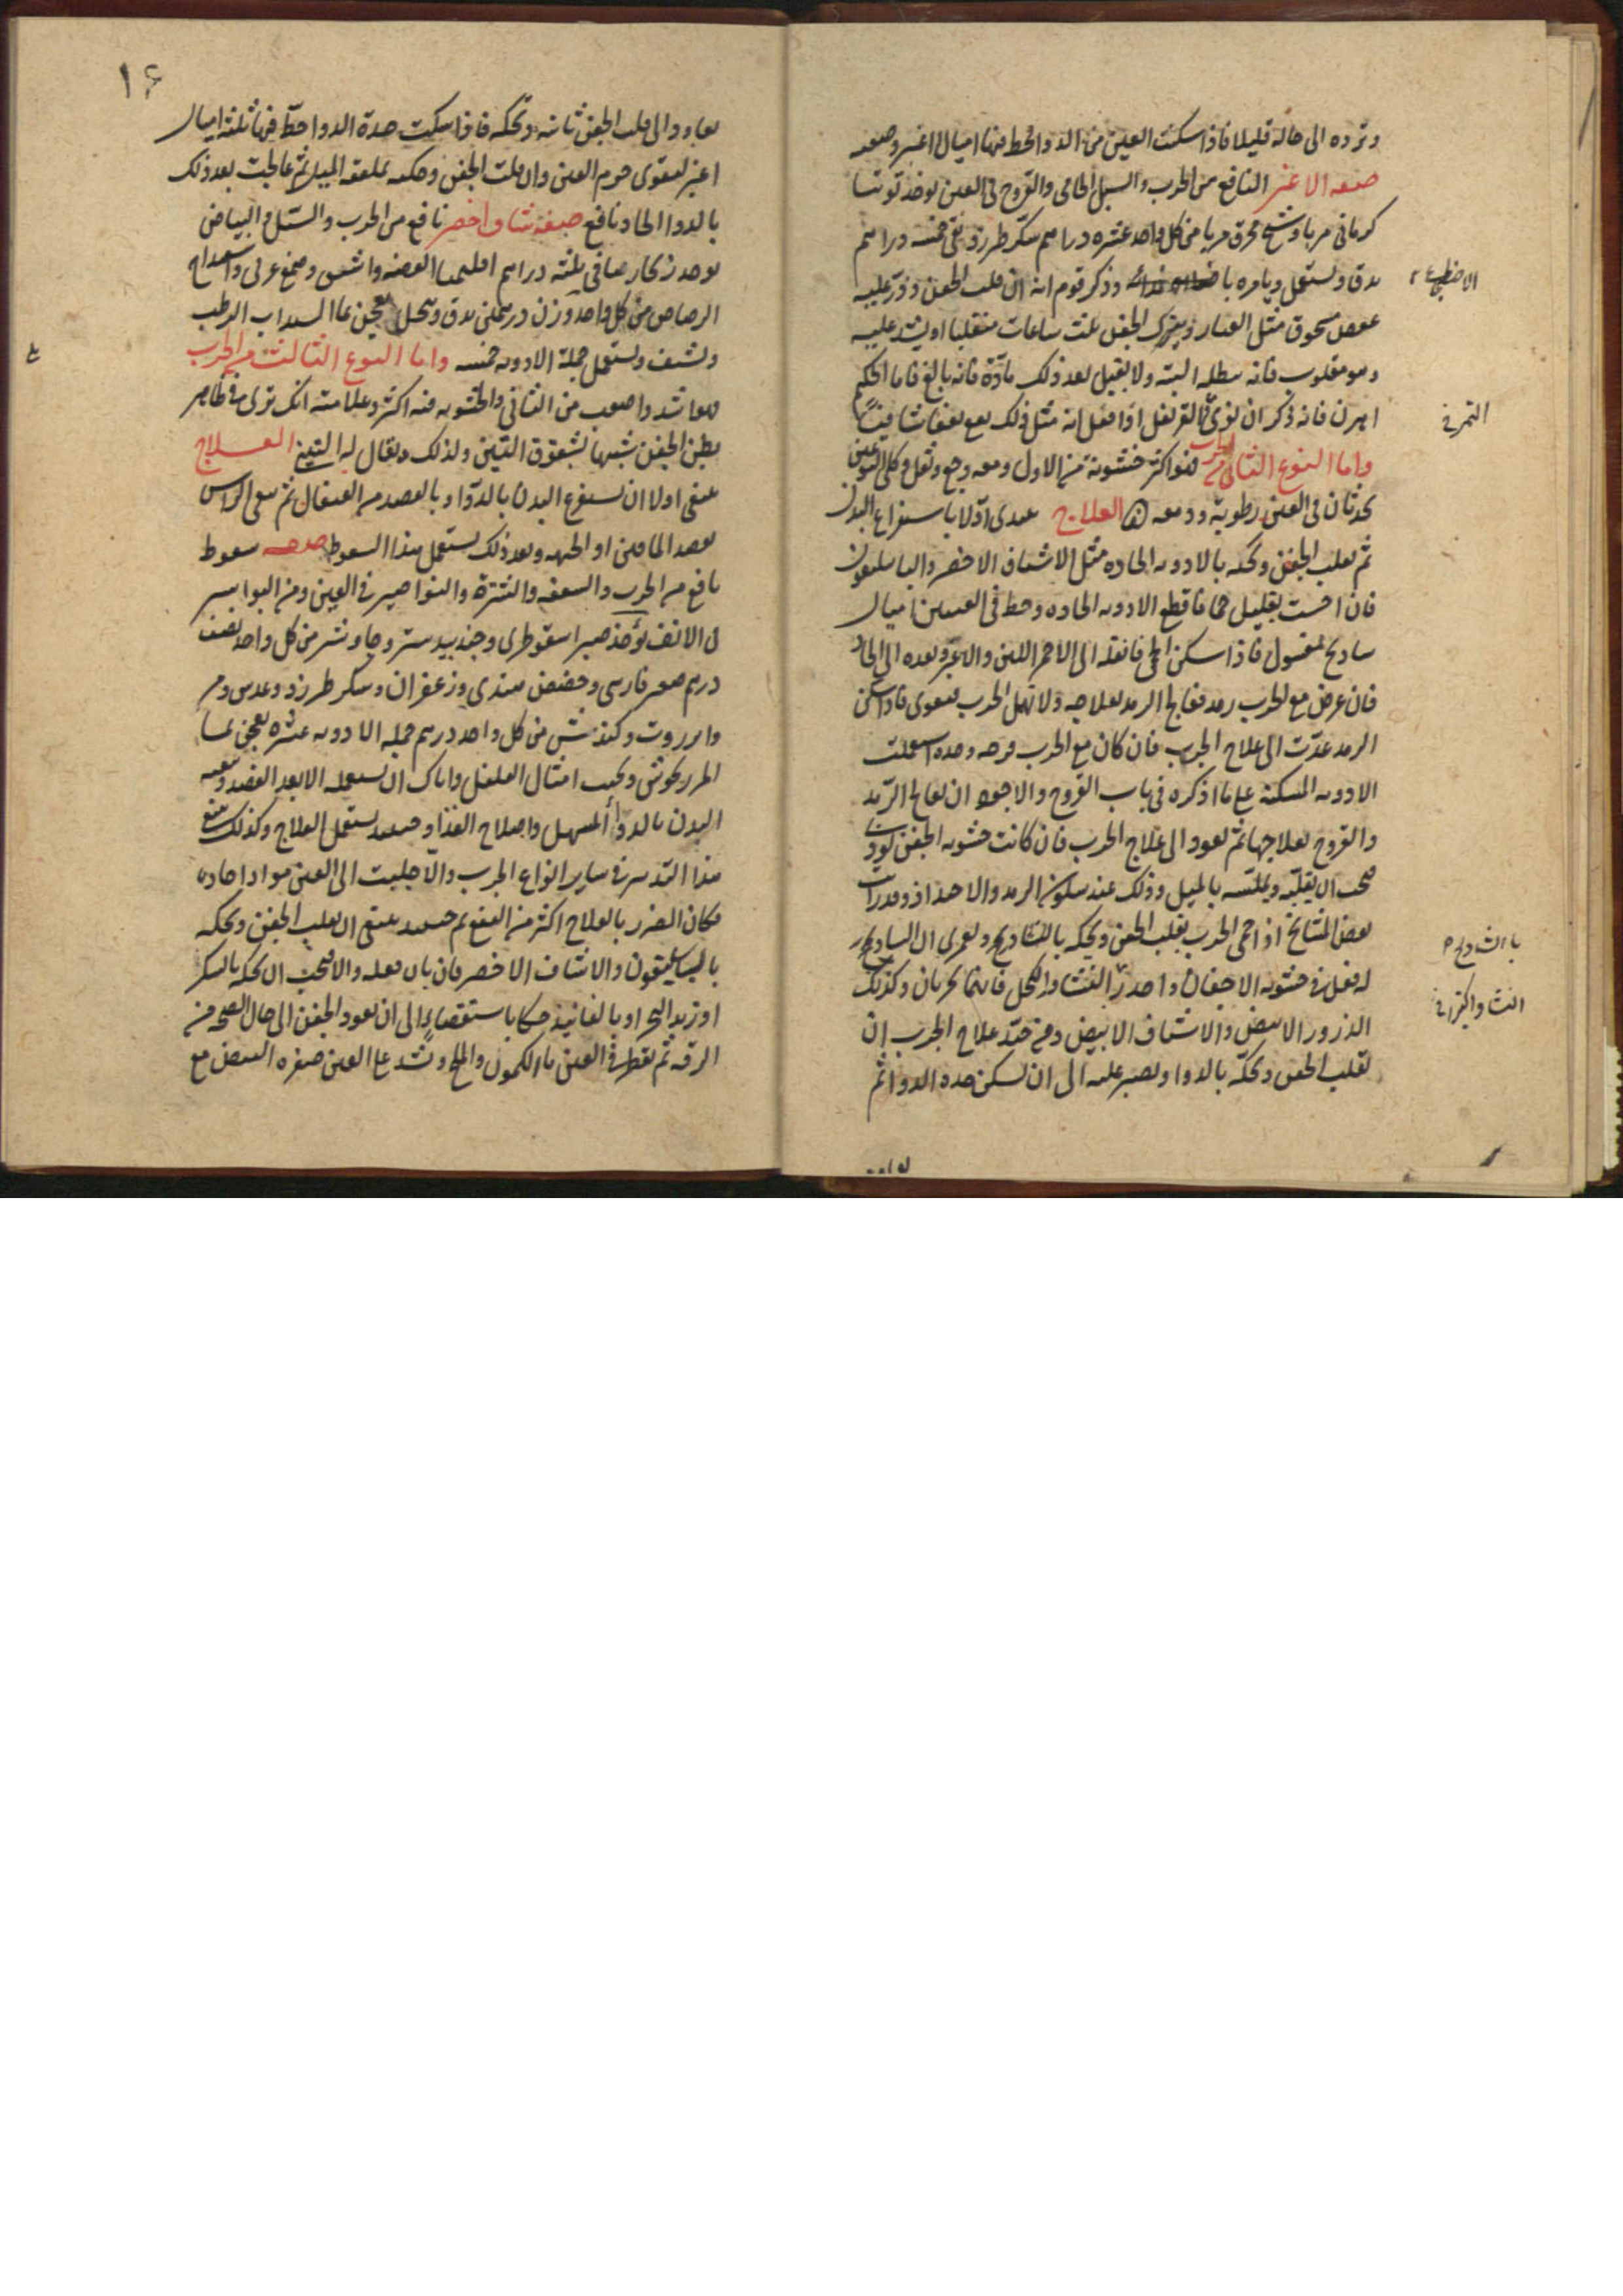 وترده الى حاله قليلا فاذا سكنت العين من الدوا فحط فيها اميال اغبر وصفه
صفه الاغبر النافع من الجرب والسبل الحامى والقروح فى العين يوخذ توتيا
كرمانى مربا وشيح محرق مربا من كل واحد عشره دراهم سكر طبرزد نقى خمسه دراهم
يدق ويستعمل ويامره وذكر قوم انه ان قلب الجفن وذر عليه
عفص مسحوق مثل الغبار ويترك الجفن ثلث ساعات منقلبا او يشد عليه
وهو مقلوب فانه يبطله البته ولا يقبل بعد ذلك مادة فانه بالغ فاما الحكيم
اهرن فانه ذكر ان اذا فعل انه مثل ذلك
واما النوع الثانى من الجرب فهو اكثر خشونة من الاول ومعه وجع وثقل وكلى النوعين
يحدثان فى العين رطوبة ودمعه العلاج تبتدى اولا باستفراغ البدن
ثم تقلب الجفن وتحكه بالادويه الحاده مثل الاشياف الاخضر والباسليقون
فان احست بقليل حما فاقطع الادويه الحاده وحط فى العينين اميال
سادنج مغسول فاذا سكن الحمى فانقله الى الاحمر اللين والاغبر وبعده الى الحاد
فان عرض مع الجرب رمد فعالج الرمد بعلاجه ولا تهمل الجرب فيقوى فاذا سكن
الرمد عدت الى علاج الجرب فان كان مع الجرب قرحه وحده استعملت
الادويه المسكنه على ما اذكره فى باب القروح والاجود ان تعالج الرمد
والقروح بعلاجها ثم تعود الى علاج الجرب فان كانت خشونه الجفن
فيجب ان تقلبه بالميل وذلك عند سكون الرمد والا وقد رايت
بعض المشايخ اذا حمى الجرب يقلب الجفن ويحكه بالشادنج ولعمرى ان السادنج
له فعل فى خشونه الاجفان واحذر النشا فانهما يجربان وكذلك
الذرور الابيض والاشياف الابيض ومن جيد علاج الجرب ان
تقلب الجفن وتحكه بالدوا وتصبر عليه الى ان تسكن حده الدوا ثم
تعاود
التمرى
باالشادنج
النشا والكثيرا فى
١۶
تعاود الى قلب الجفن ثانيه وتحكه فاذا سكنت حدة الدوا حط فيها ثلثه اميال
اغبر ليقوى جرم العين وان قلبت الجفن وحككته بملعقه الميل ثم عالجت بعد ذلك
بالدوا الحاد نافع صفة شياف اخضر نافع من الجرب والسبل والبياض
يوخذ زنجار صافى ثلثه دراهم اقليميا الفضه واشق وصمغ عربى واسفيداج
الرصاص من كل واحد وزن درهمين يدق وينخل يعجن بما السداب الرطب
ويشيف ويستعمل جملة الادويه خمسه واما النوع الثالث من الجرب
فهو اشد واصعب من الثانى والخشونه فيه اكثر وعلامته انك ترى فى ظاهر
بطن الجفن شبيها بشقوق التين ولذلك يقال له التينى العلاج
ينبغى اولا ان يستفرغ البدن بالدوا وبالفصد من القيفال ثم تنقى الراس
بفصد الماقين او الجبهه وبعد ذلك يستعمل هذا السعوط صفه سعوط
نافع من الجرب والسعفه والنترة والنواصير فى العين ومن البواسير
فى الانف يؤخذ صبر اسقوطرى وجندبيدستر وجاوشير من كل واحد نصف
درهم صعتر فارسى وحضض هندى وزعفران وسكر طبرزد وعدس ومر
وانزروت وكندش من كل واحد درهم جمله الادويه عشره يعجن بما
المرزنجوش ويحبب امثال الفلفل واياك ان تستعمله الا بعد الفصد وتنقيه
البدن بالدوا المسهل واصلاح الغذا وحينئذ يستعمل العلاج وكذلك ينبغى
هذا التدبير فى ساير انواع الجرب والا جلبت الى العين مواد احاده
فكان الضرر بالعلاج اكثر من النفع ثم حينئذ ينبغى ان تقلب الجفن وتحكه
بالباسليقون والاشياف الاخضر فان بان فعله والا فيجب ان تحكه بالسكر
او زبد البحر او بالفانيذ حكا باستقصاء الى ان تعود الجفن الى حال الصحه من
الرقه ثم تقطر فى العين ما الكمون والملح وتشد على العين صفره البيض مع